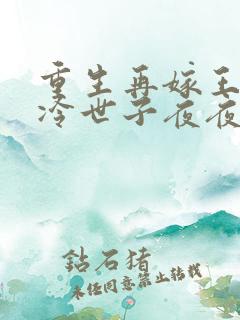 重生再嫁王
冷世子夜夜
鈷石猪
未任同意禁止轉載